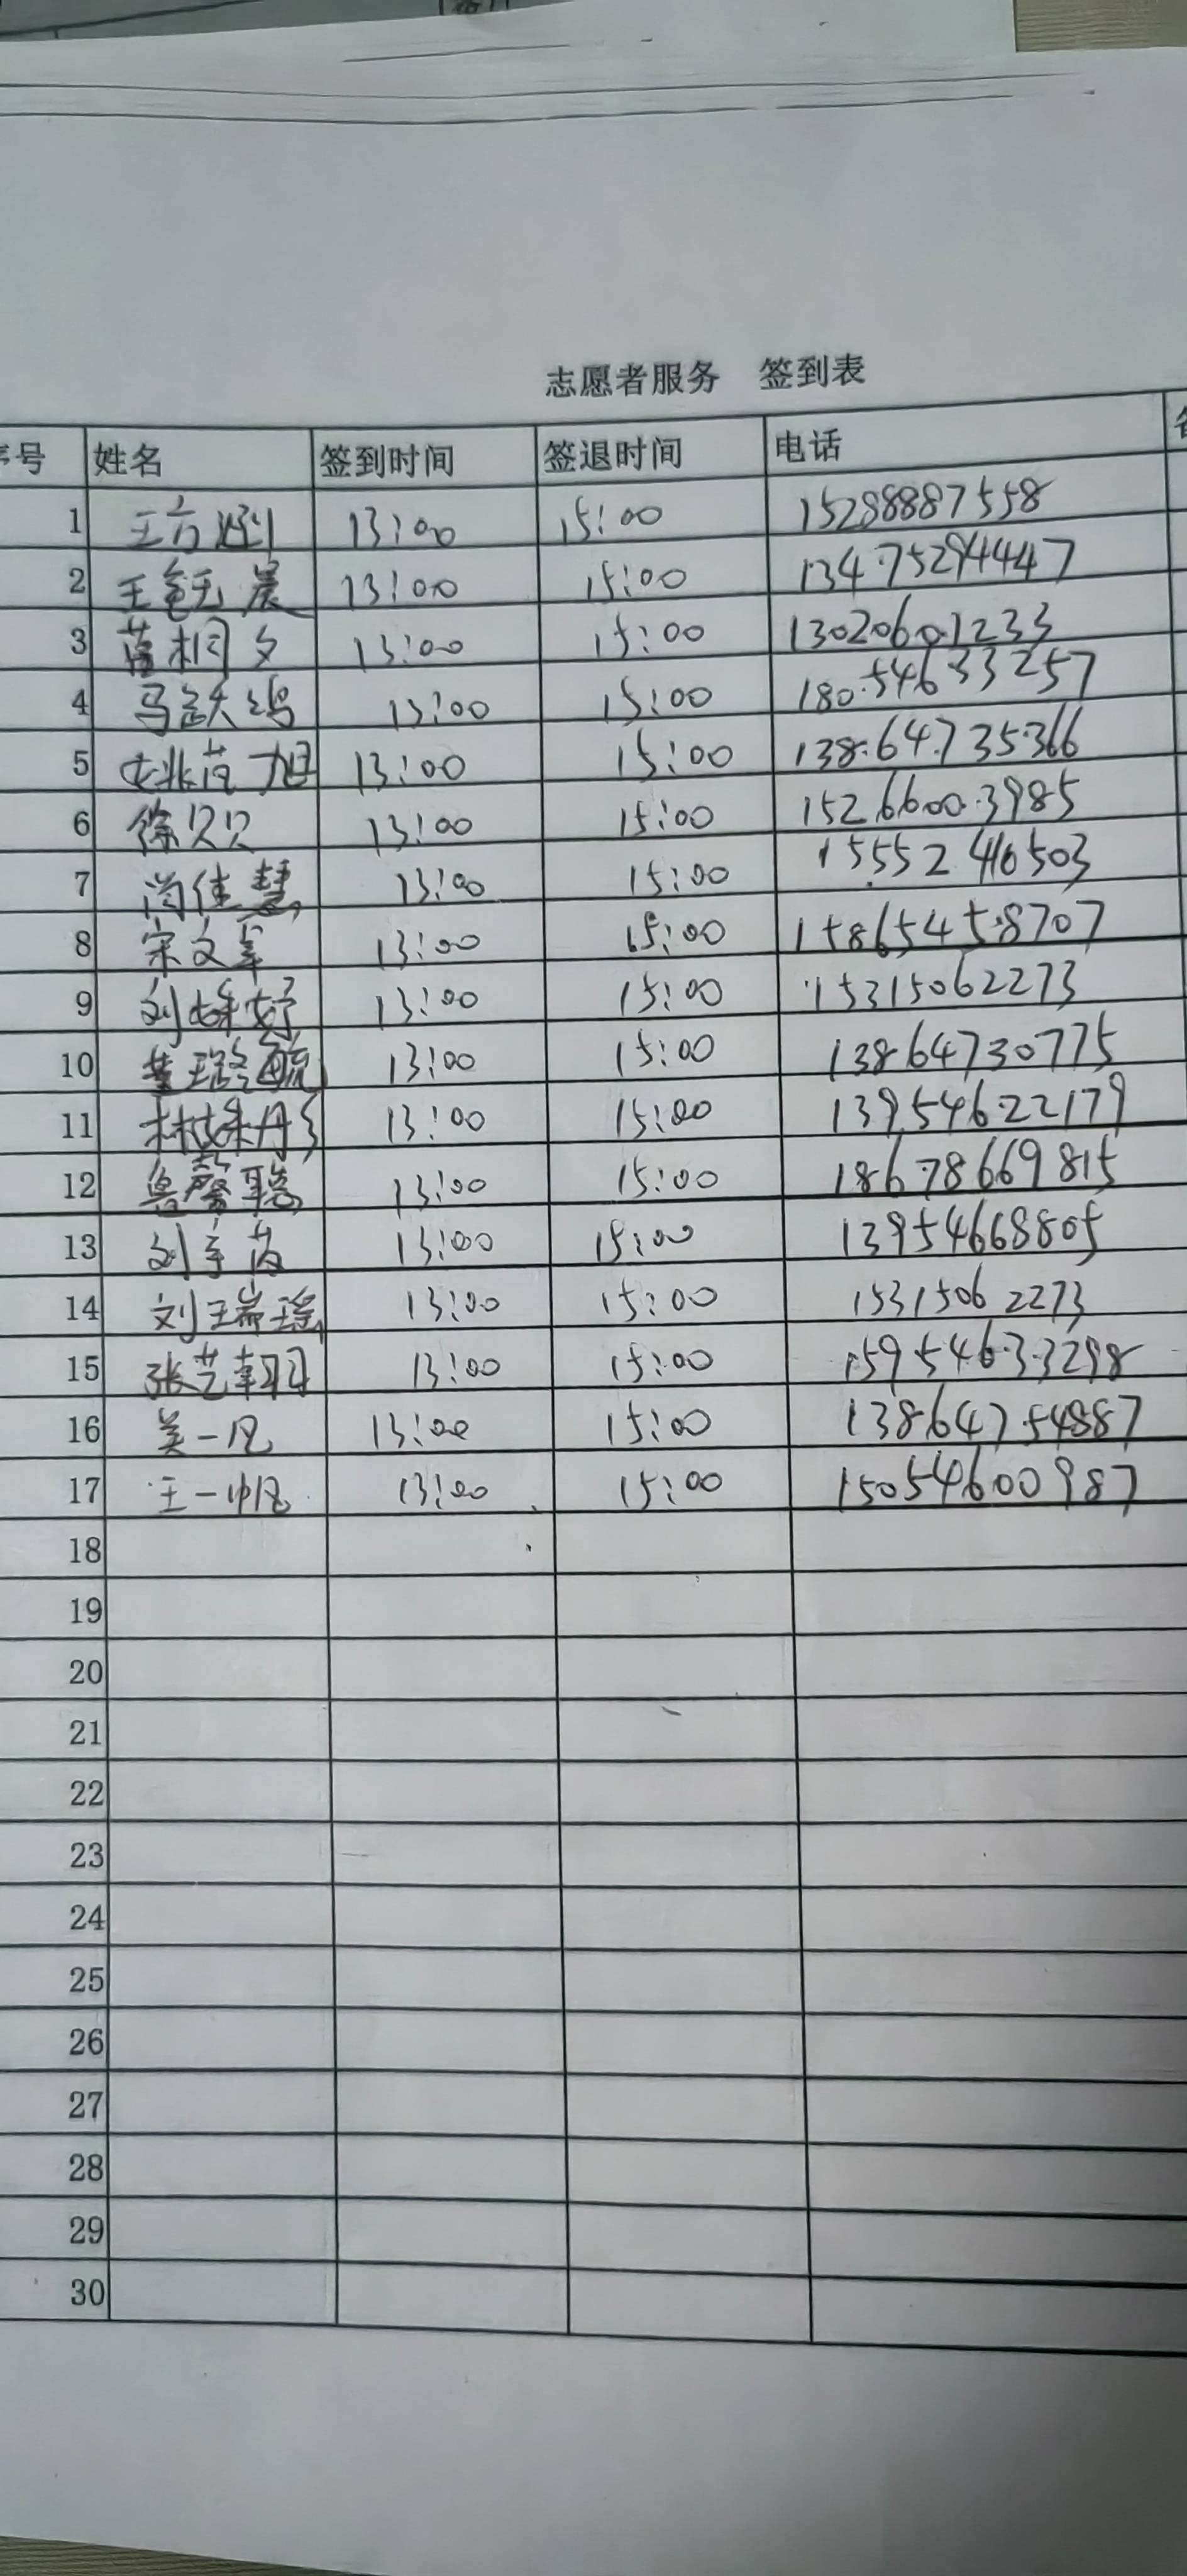 志愿者服务 签到表
序号 姓名 签到时间 签退时间 电话
1 13:00 15:00 15288887558
2 王 晨 13:00 15:00 13475294447
3 桐夕 13:00 15:00 13020601233
4 马 13:00 15:00 18054633257
5 姚 旭 13:00 15:00 13864735366
6 徐贝贝 13:00 15:00 15266003985
7 尚佳慧 13:00 15:00 15552416503
8 宋文 13:00 15:00 15865458707
9 刘姝妤 13:00 15:00 15315062273
10 董璐毓 13:00 15:00 13864730775
11 林姝彤 13:00 15:00 13954622179
12 鲁馨聪 13:00 15:00 18678669815
13 刘 13:00 15:00 13954668805
14 刘瑞瑶 13:00 15:00 15315062273
15 张艺 13:00 15:00 15954633298
16 姜一凡 13:00 15:00 13864754887
17 王一帆 13:00 15:00 15054600987
18
19
20
21
22
23
24
25
26
27
28
29
30